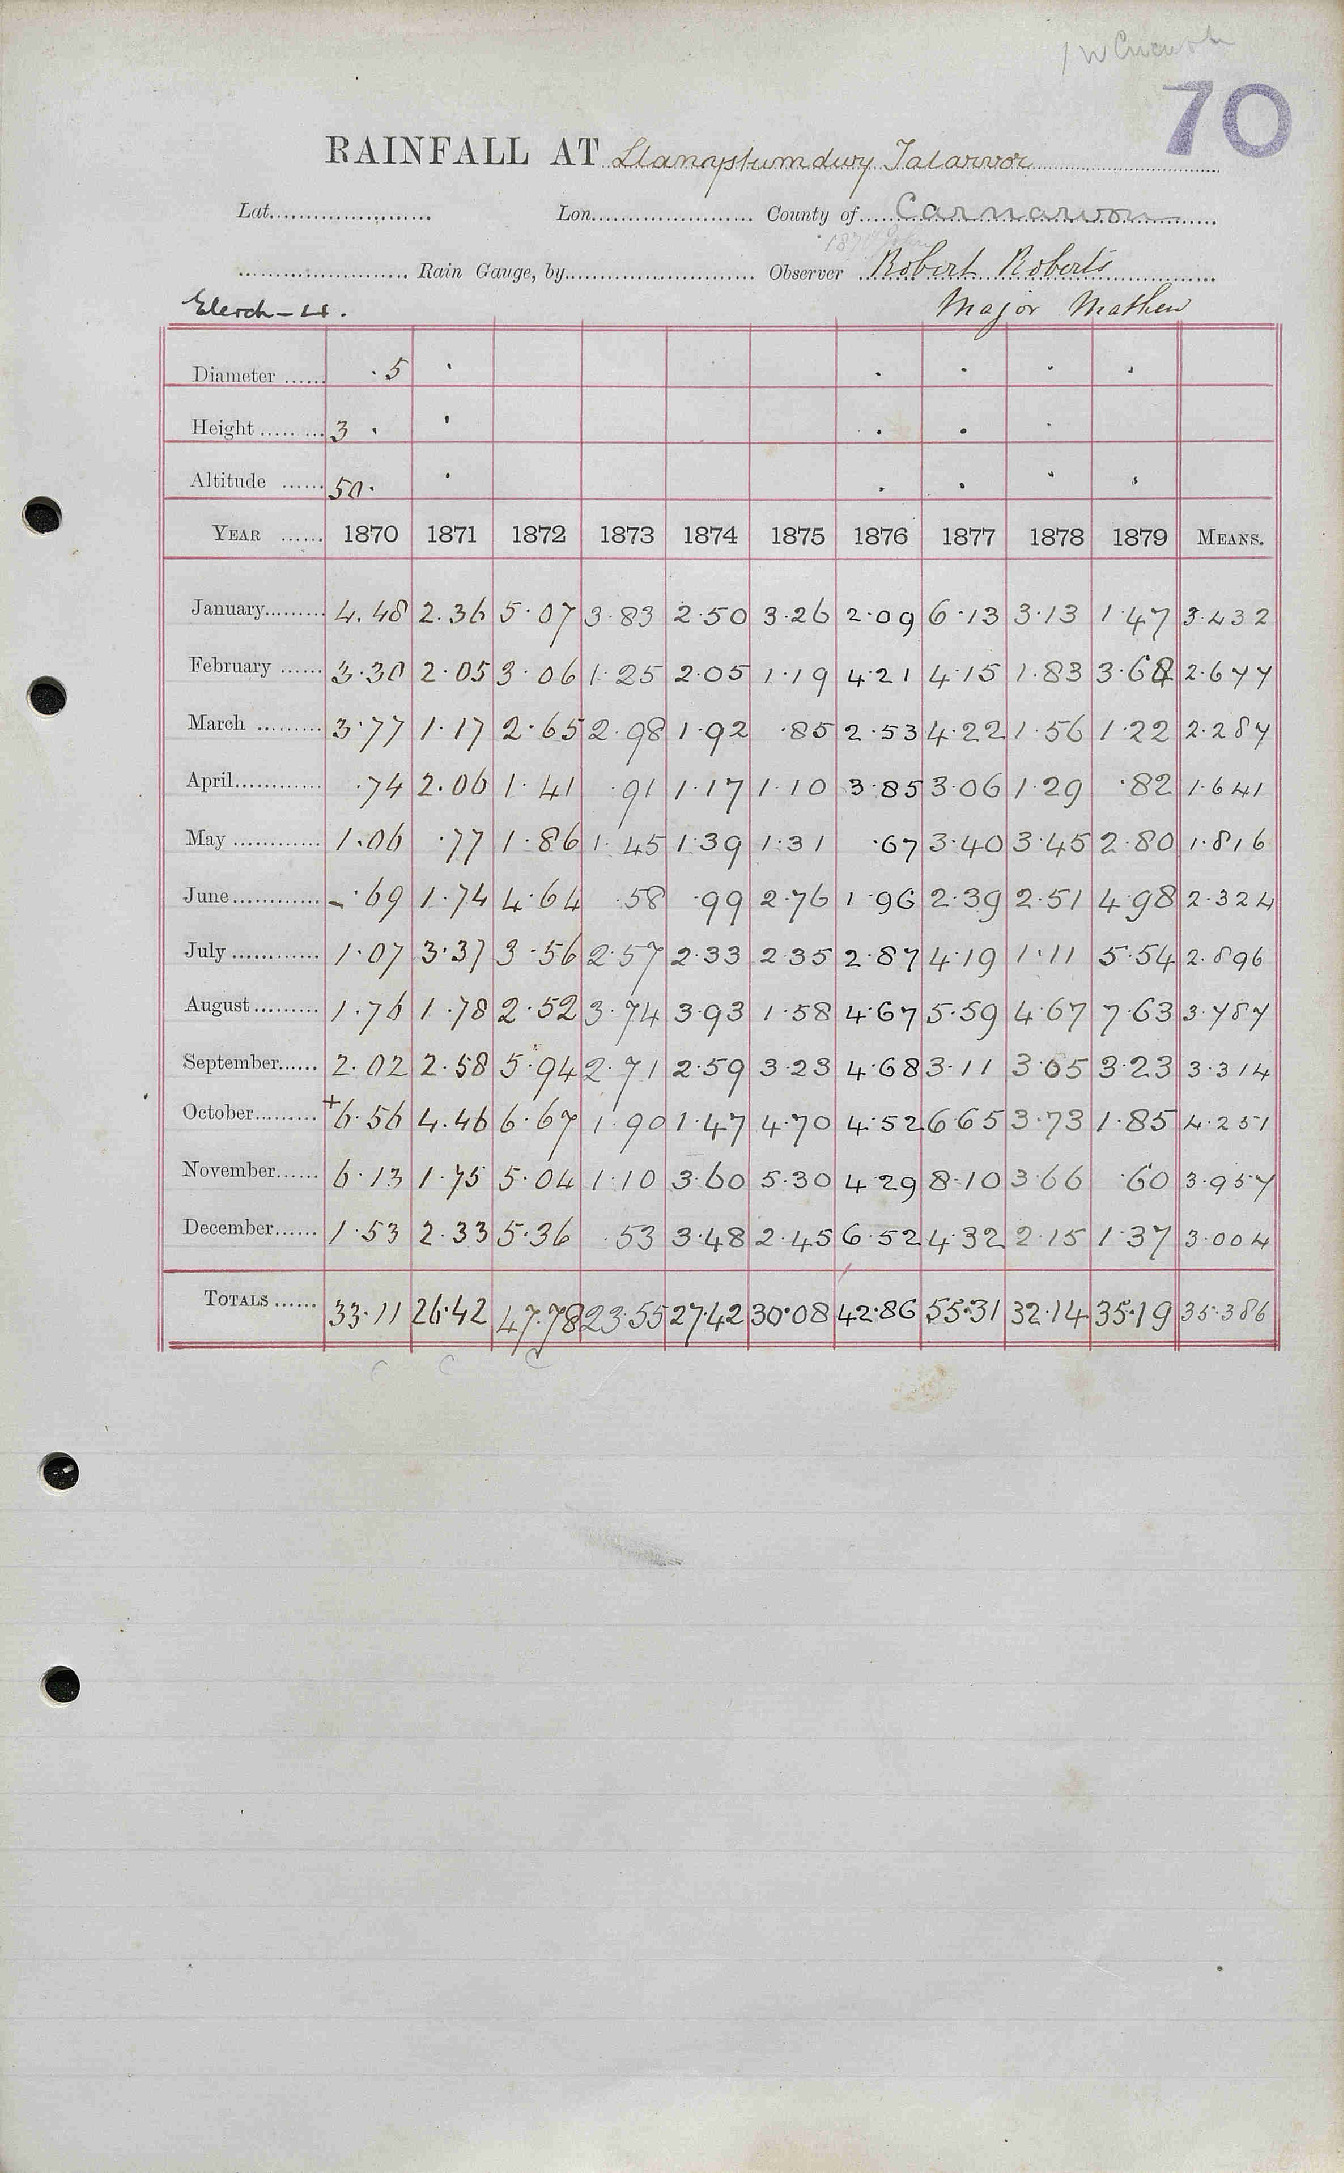 70
RAINFALL AT Llanystumdwy Talarvor
Lat. Lon. County of Carnarvon
Rain Gauge, by Observer Robert Roberts
Major Mathew
Diameter 5
Height 3
Altitude 50
YEAR 1870 1871 1872 1873 1874 1875 1876 1877 1878 1879 MEANS.
January 4.48 2.36 5.07 3.83 2.50 3.26 2.09 6.13 3.13 1.47 3.432
February 3.30 2.05 3.06 1.25 2.05 1.19 4.21 4.15 1.83 3.68 2.677
March 3.77 1.17 2.65 2.98 1.92 .85 2.53 4.22 1.56 1.22 2.287
April .74 2.06 1.41 .91 1.17 1.10 3.85 3.06 1.29 .82 1.641
May 1.06 .77 1.86 1.45 1.39 1.31 .67 3.40 3.45 2.80 1.816
June - .69 1.74 4.64 .58 .99 2.76 1.96 2.39 2.51 4.98 2.324
July 1.07 3.37 3.56 2.57 2.33 2.35 2.87 4.19 1.11 5.54 2.896
August 1.76 1.78 2.52 3.74 3.93 1.58 4.67 5.59 4.67 7.63 3.787
September 2.02 2.58 5.94 2.71 2.59 3.23 4.68 3.11 3.05 3.23 3.314
October + 6.56 4.46 6.67 1.90 1.47 4.70 4.52 6.65 3.73 1.85 4.251
November 6.13 1.75 5.04 1.10 3.60 5.30 4.29 8.10 3.66 .60 3.957
December 1.53 2.33 5.36 .53 3.48 2.45 6.52 4.32 2.15 1.37 3.004
TOTALS 33.11 26.42 47.78 23.55 27.42 30.08 42.86 55.31 32.14 35.19 35.386